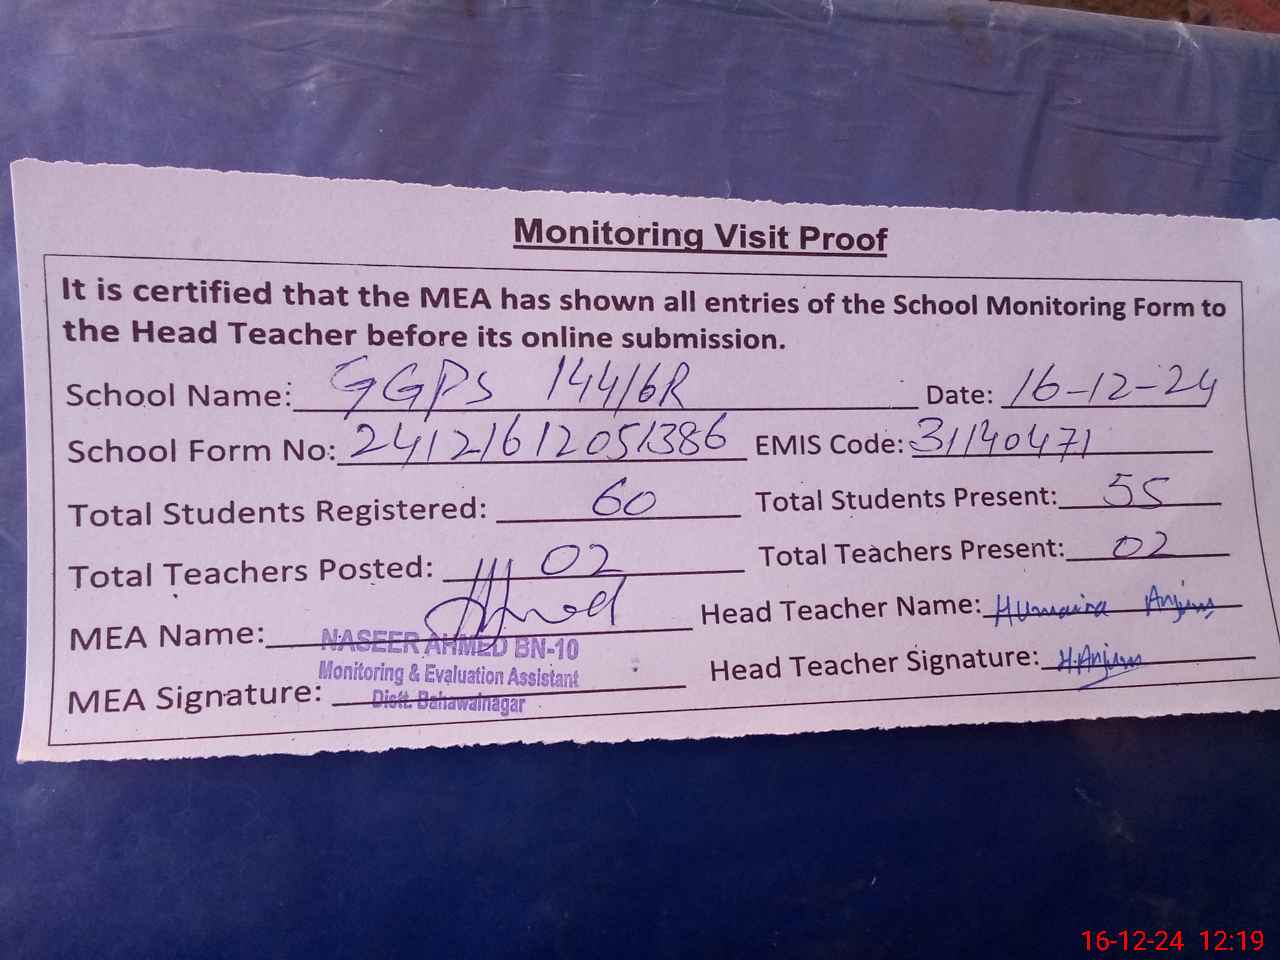 Monitoring Visit Proof
It is certified that the MEA has shown all entries of the School Monitoring Form to
the Head Teacher before its online submission.
School Name: GGPS 144/6R Date: 16-12-24
School Form No: 24121612051386 EMIS Code: 31140471
Total Students Registered: 60 Total Students Present: 55
Total Teachers Posted: 02 Total Teachers Present: 02
MEA Name: Head Teacher Name: Humaira Anjum
NASEER AHMED BN-10
Monitoring & Evaluation Assistant
Distt. Bahawalnagar
MEA Signature: Head Teacher Signature: H.Anjum
16-12-24 12:19